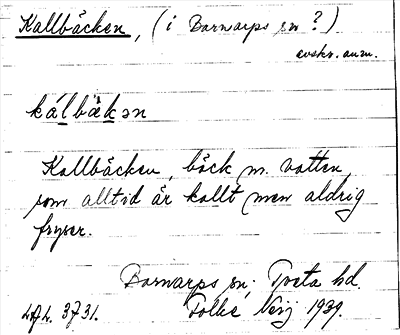 Kallbäcken, (i Barnarps sn?)
avskr. anm.
kálbäkən
Kallbäcken, bäck m. vatten,
som alltid är kallt men aldrig
fryser.
Barnarps sn; Tveta hd.
ULJH. 3731. Folke Neij 1939.